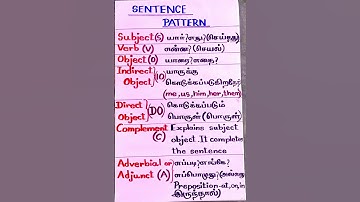 SENTENCE
PATTERN
Subject (S) யார்? எது? (செய்தது)
Verb (V) என்ன? (செயல்)
Object (O) யாரை? எதை?
Indirect Object (IO) யாருக்கு கொடுக்கப்படுகிறது?
(me, us, him, her, them)
Direct Object (DO) கொடுக்கப்படும் பொருள் (பொருள்)
Complement (C) Explains subject
object. It completes
the sentence
Adverbial or எப்படி? எங்கே?
Adjunct (A) எப்பொழுது?
Preposition-at, on, in
இருந்தால்)